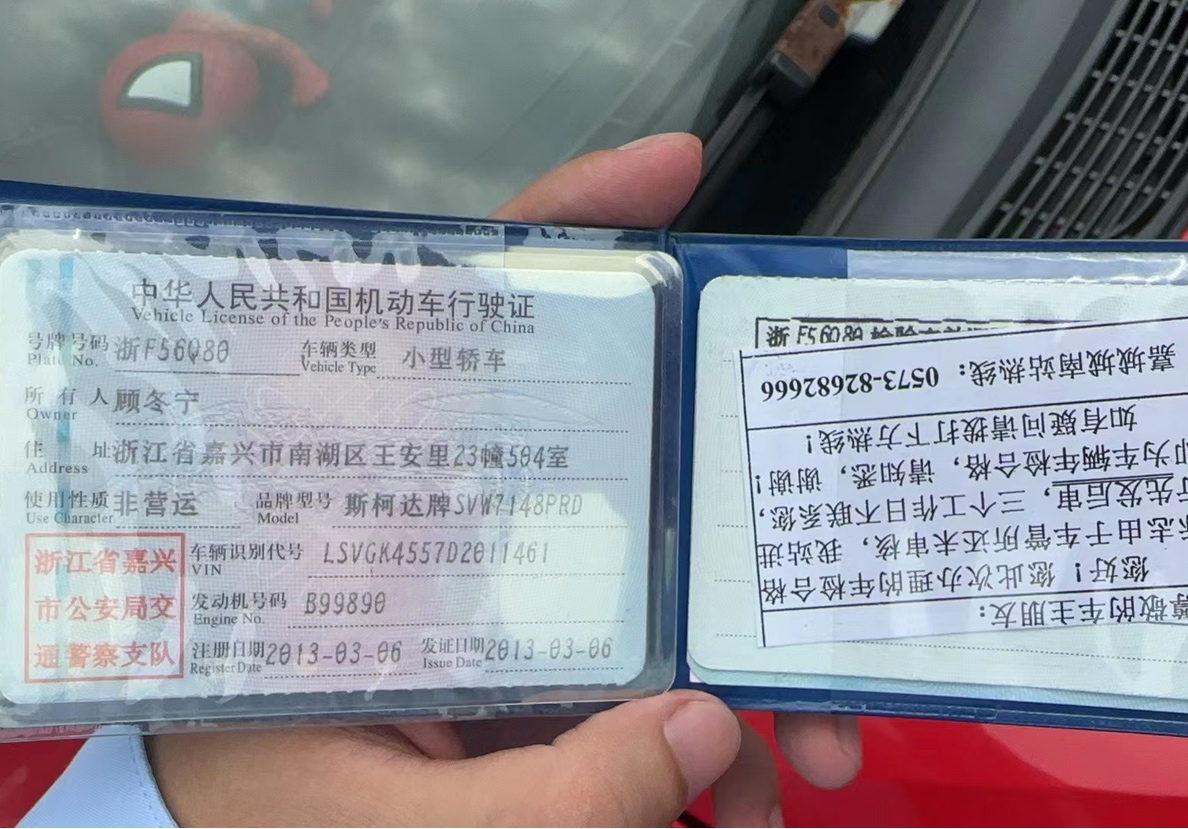 中华人民共和国机动车行驶证
Vehicle License of the People's Republic of China
号牌号码 浙F56Q80 车辆类型 小型轿车
Plate No. Vehicle Type
所有人 顾冬宁
Owner
住址 浙江省嘉兴市南湖区王安里23幢504室
Address
使用性质 非营运 品牌型号 斯柯达牌SVW7148PRD
Use Character Model
浙江省嘉兴
市公安局交
通警察支队
车辆识别代号 LSVGK4557D2011461
VIN
发动机号码 B99890
Engine No.
注册日期 2013-03-06 发证日期 2013-03-06
Register Date Issue Date
浙F56Q80
敬的车主朋友:
您好!您此次办理的年检合格
志由于车管所还未审核,我站进
先发后审,三个工作日不联系您,
为车辆年检合格,请知悉,谢谢!
如有疑问请拨打下方热线!
嘉城城南站热线:0573-82682666